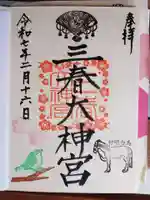 奉拝
三春大神宮
令和七年二月十六日